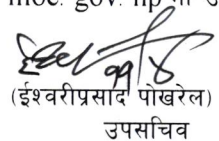 moc. gov. np मा उ
(ईश्वरीप्रसाद पोखरेल)
उपसचिव